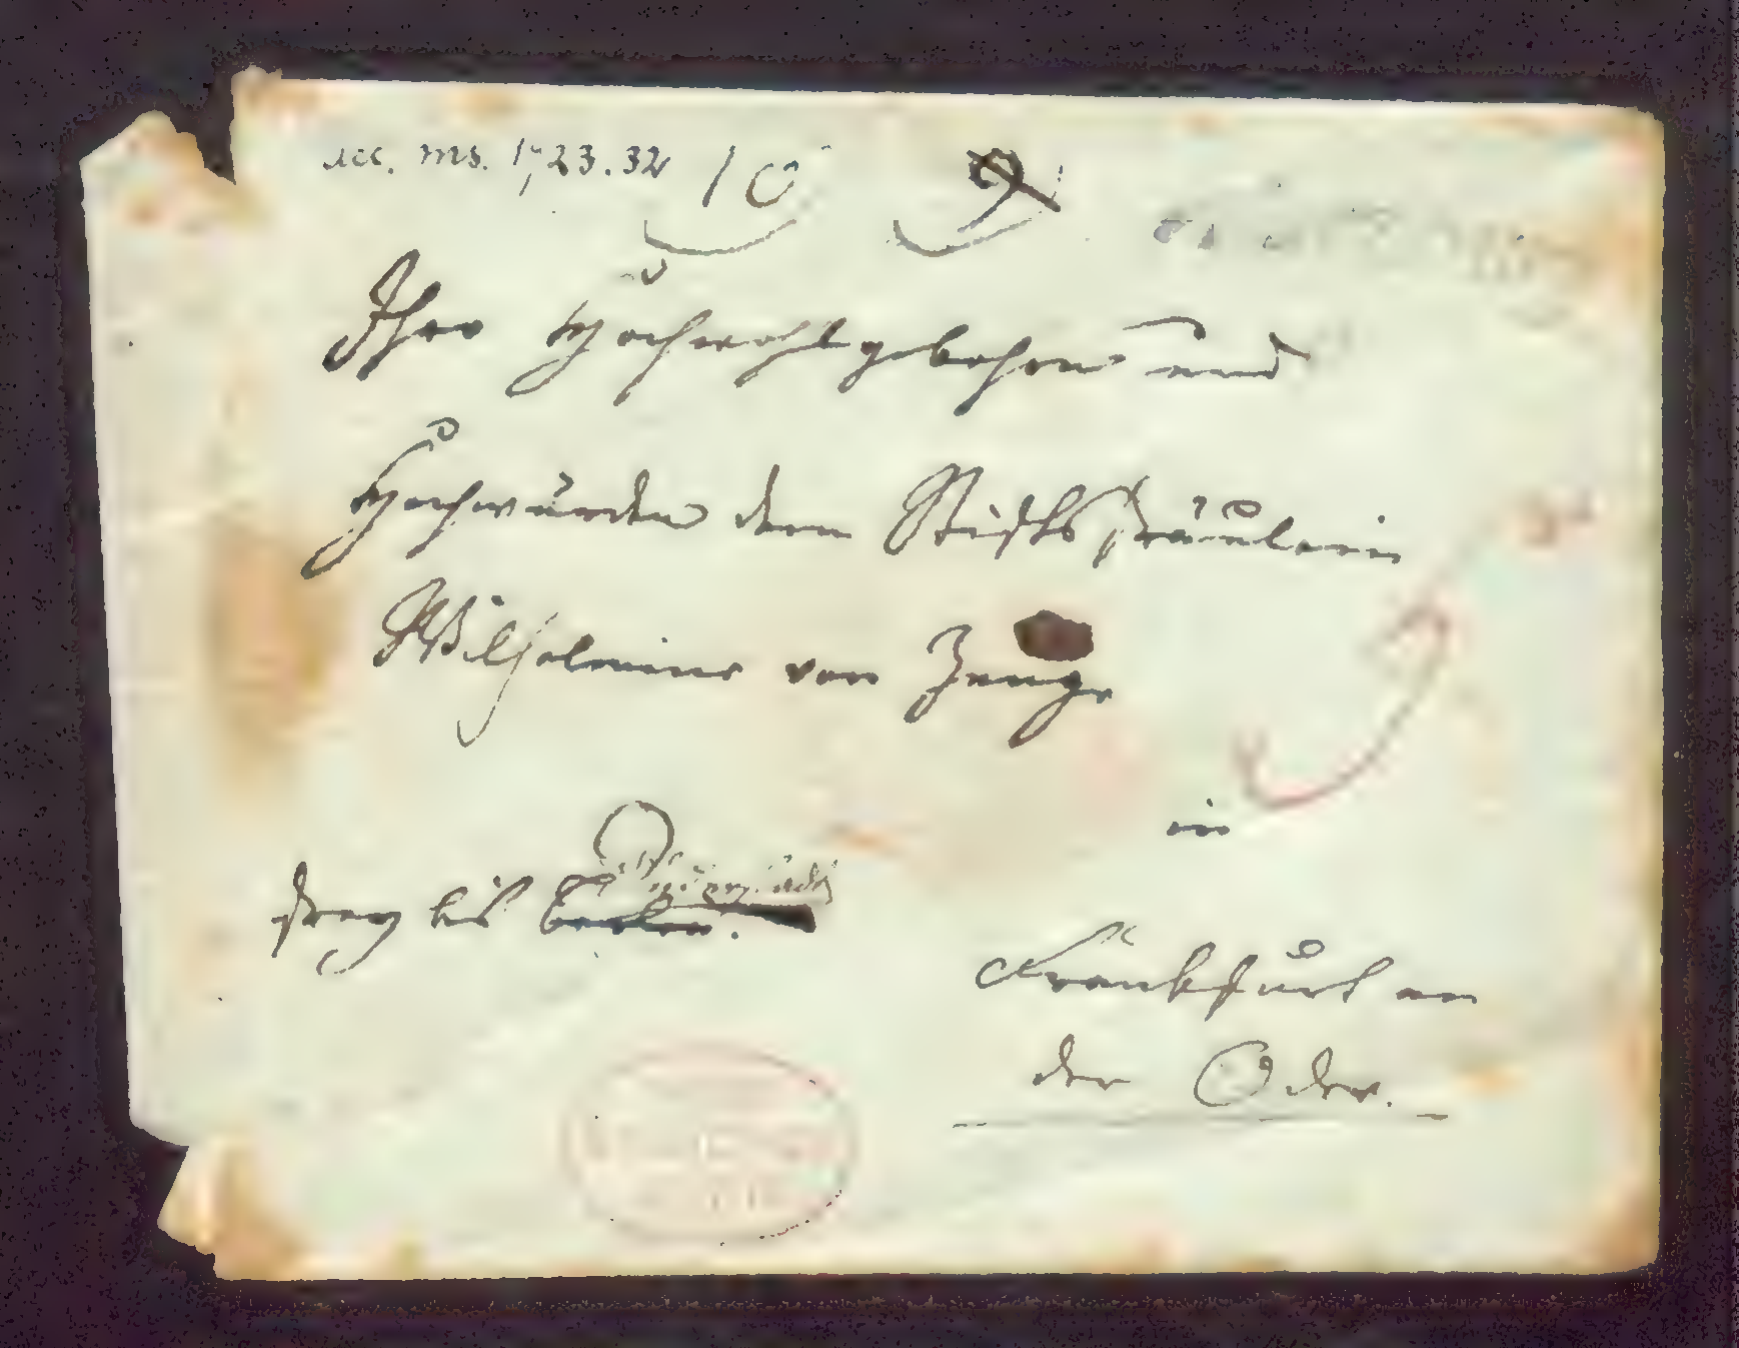 acc. ms. 1923.32 10
Ihro Hochwohlgebohrn und
Hochwürden dem Stiftsfräulein
Wilhelmine von Zenge
in
frey bis Berlin.
Frankfurt an
der Oder.